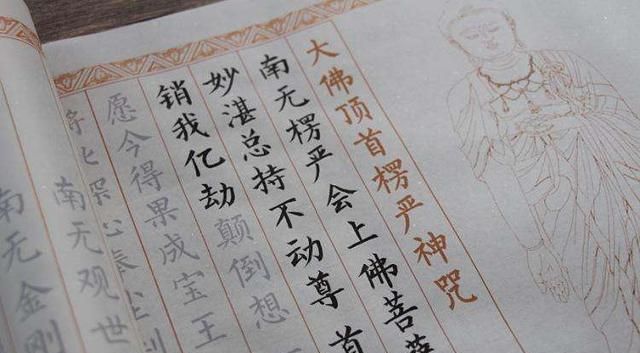 大佛顶首楞严神咒
南无楞严会上佛菩萨
妙湛总持不动尊 首
销我亿劫颠倒想
愿今得果成宝王
心奉尘刹
南无观世
南无金刚